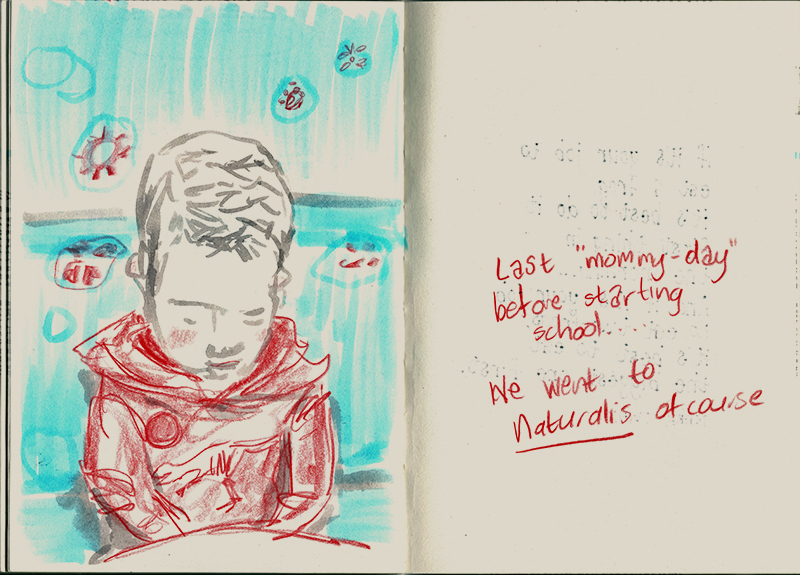 Last "mommy-day"
before starting
school.
We went to
Naturalis of course